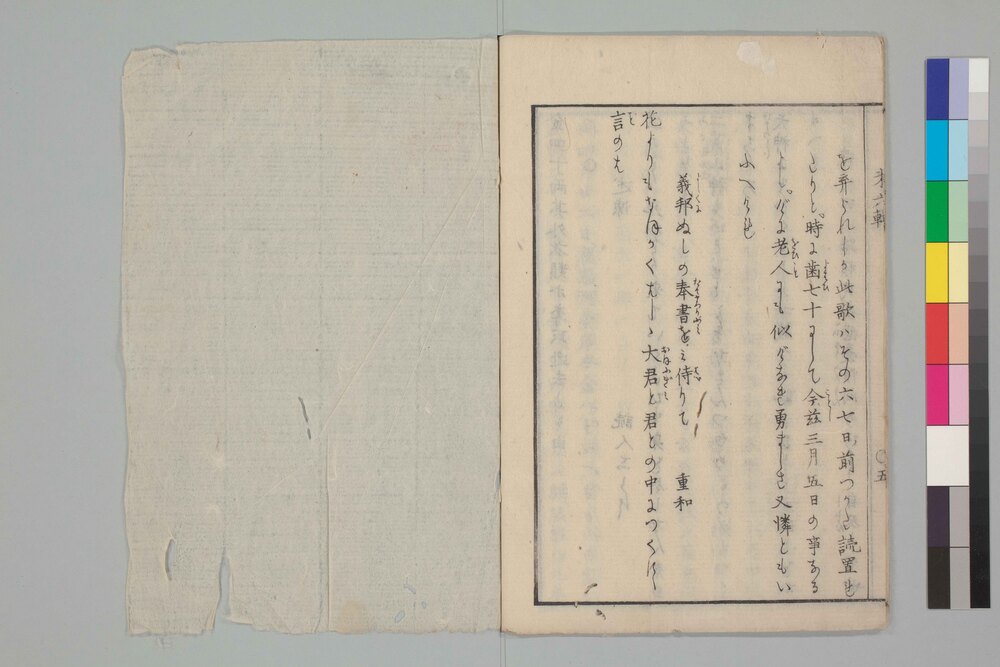 を弃られしが此歌ハその六七日前つかた読置れ
こりと。時に歯七十にして今茲三月五日の事なる
よし。げに老人にも似げなき勇ましさ又憐ともい
ふへかれ
義邦ぬしの奉書をミ侍りて 重和
花よりもなほかくはしゝ大君と君との中につくしゝ
言のは
五